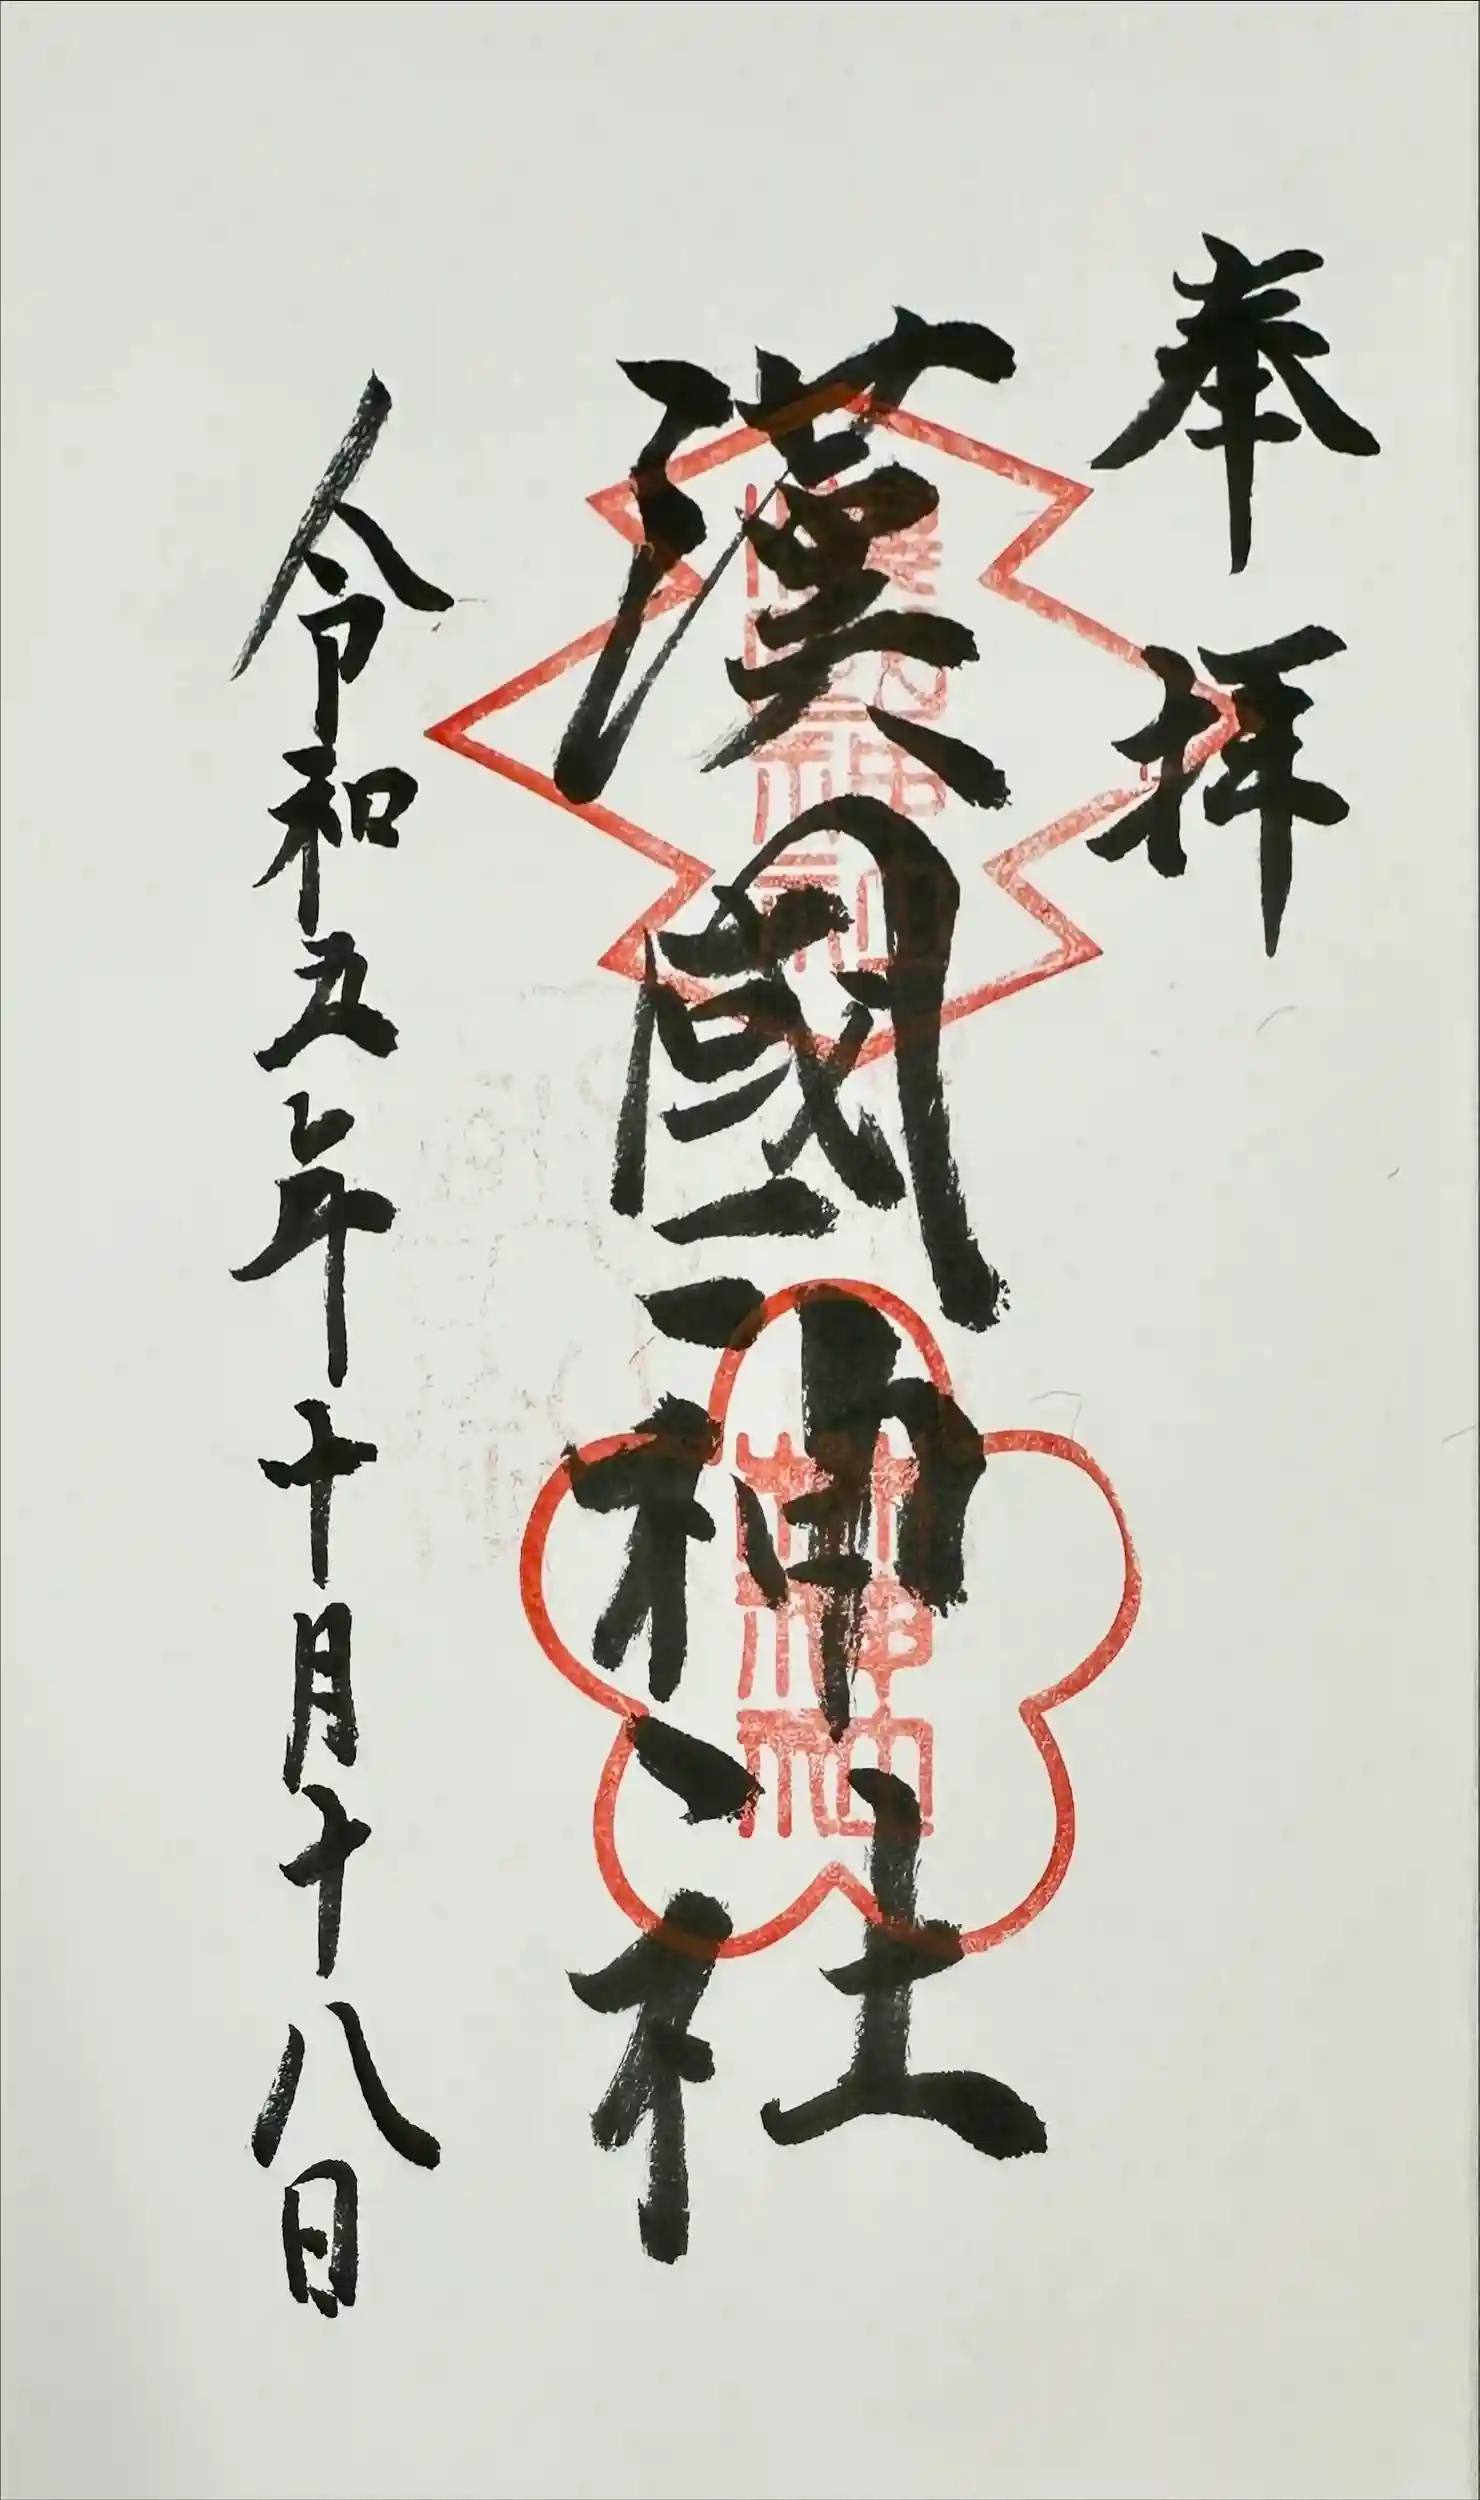 奉拝
漢國神社
漢國神社
林神社
令和五年十月十八日